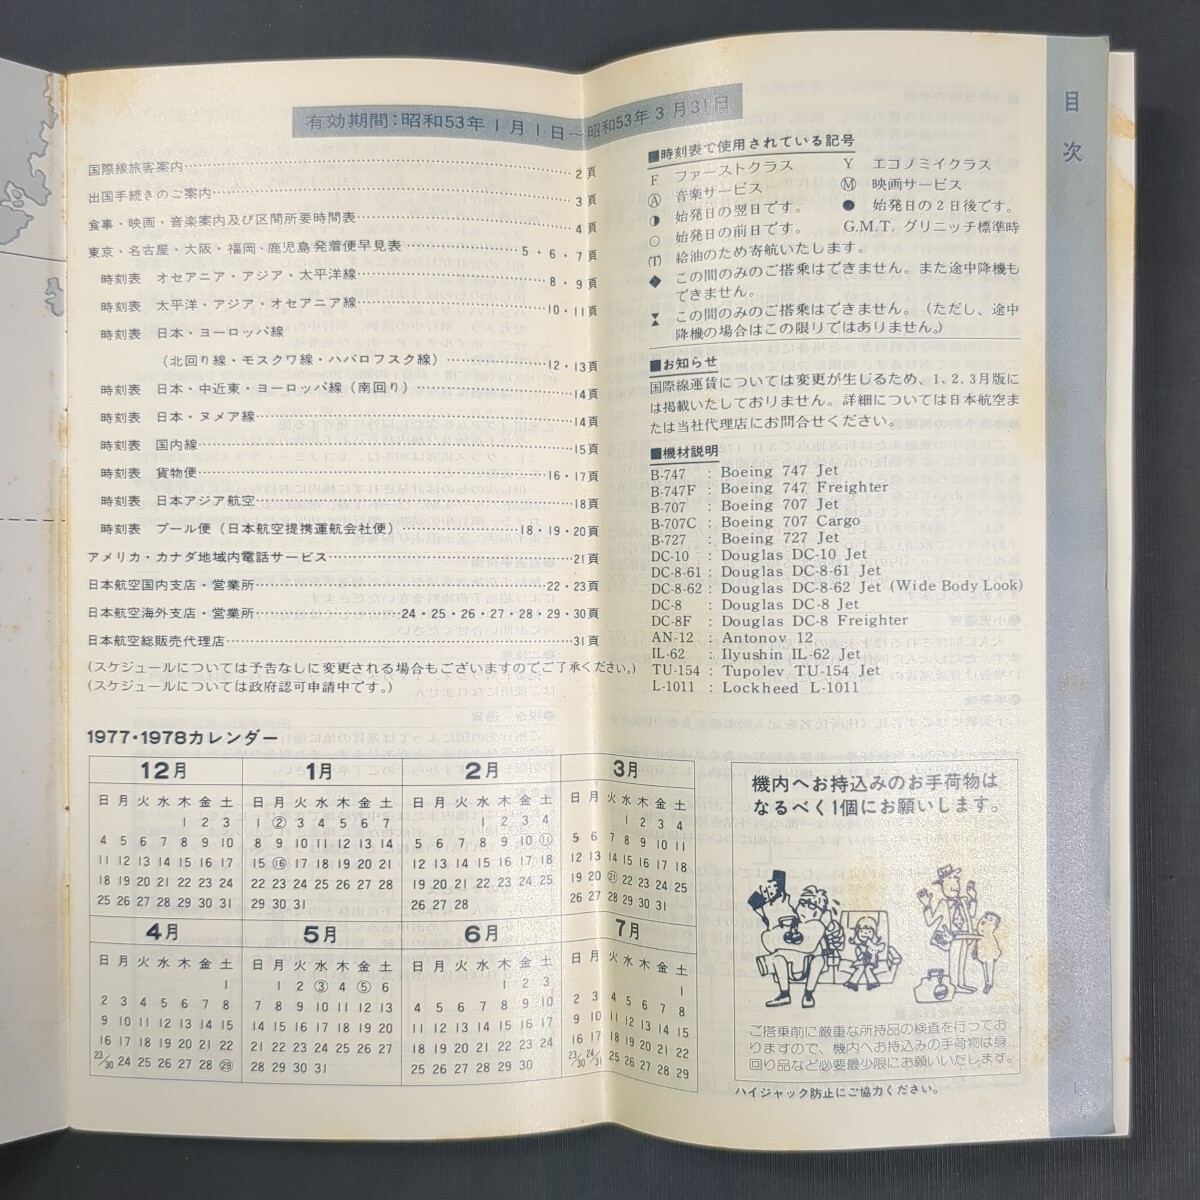 目次
有効期間:昭和53年1月1日~昭和53年3月31日
国際線旅客案内……2頁
出国手続きのご案内……3頁
食事・映画・音楽案内及び区間所要時間表……4頁
東京・名古屋・大阪・福岡・鹿児島発着便早見表……5・6・7頁
時刻表 オセアニア・アジア・太平洋線……8・9頁
時刻表 太平洋・アジア・オセアニア線……10・11頁
時刻表 日本・ヨーロッパ線
(北回り線・モスクワ線・ハバロフスク線)……12・13頁
時刻表 日本・中近東・ヨーロッパ線(南回り)……14頁
時刻表 日本・ヌメア線……14頁
時刻表 国内線……15頁
時刻表 貨物便……16・17頁
時刻表 日本アジア航空……18頁
時刻表 プール便(日本航空提携運航会社便)……18・19・20頁
アメリカ・カナダ地域内電話サービス……21頁
日本航空国内支店・営業所……22・23頁
日本航空海外支店・営業所……24・25・26・27・28・29・30頁
日本航空総販売代理店……31頁
(スケジュールについては予告なしに変更される場合もございますのでご了承ください。)
(スケジュールについては政府認可申請中です。)
■時刻表で使用されている記号
F ファーストクラス Y エコノミイクラス
Ⓐ 音楽サービス Ⓜ 映画サービス
◑ 始発日の翌日です。 ● 始発日の2日後です。
○ 始発日の前日です。 G.M.T. グリニッチ標準時
(T) 給油のため寄航いたします。
◆ この間のみのご搭乗はできません。また途中降機も
できません。
⧗ この間のみのご搭乗はできません。(ただし、途中
降機の場合はこの限りではありません。)
■お知らせ
国際線運賃については変更が生じるため、1、2、3月版に
は掲載いたしておりません。詳細については日本航空ま
たは当社代理店にお問合せください。
■機材説明
B-747 : Boeing 747 Jet
B-747F : Boeing 747 Freighter
B-707 : Boeing 707 Jet
B-707C : Boeing 707 Cargo
B-727 : Boeing 727 Jet
DC-10 : Douglas DC-10 Jet
DC-8-61 : Douglas DC-8-61 Jet
DC-8-62 : Douglas DC-8-62 Jet (Wide Body Look)
DC-8 : Douglas DC-8 Jet
DC-8F : Douglas DC-8 Freighter
AN-12 : Antonov 12
IL-62 : Ilyushin IL-62 Jet
TU-154 : Tupolev TU-154 Jet
L-1011 : Lockheed L-1011
1977・1978カレンダー
12月
日 月 火 水 木 金 土
1 2 3
4 5 6 7 8 9 10
11 12 13 14 15 16 17
18 19 20 21 22 23 24
25 26 27 28 29 30 31
1月
日 月 火 水 木 金 土
1 ② 3 4 5 6 7
8 9 10 11 12 13 14
15 ⑯ 17 18 19 20 21
22 23 24 25 26 27 28
29 30 31
2月
日 月 火 水 木 金 土
1 2 3 4
5 6 7 8 9 10 ⑪
12 13 14 15 16 17 18
19 20 21 22 23 24 25
26 27 28
3月
日 月 火 水 木 金 土
1 2 3 4
5 6 7 8 9 10 11
12 13 14 15 16 17 18
19 20 ㉑ 22 23 24 25
26 27 28 29 30 31
4月
日 月 火 水 木 金 土
1
2 3 4 5 6 7 8
9 10 11 12 13 14 15
16 17 18 19 20 21 22
23/30 24 25 26 27 28 ㉙
5月
日 月 火 水 木 金 土
1 2 ③ 4 ⑤ 6
7 8 9 10 11 12 13
14 15 16 17 18 19 20
21 22 23 24 25 26 27
28 29 30 31
6月
日 月 火 水 木 金 土
1 2 3
4 5 6 7 8 9 10
11 12 13 14 15 16 17
18 19 20 21 22 23 24
25 26 27 28 29 30
7月
日 月 火 水 木 金 土
1
2 3 4 5 6 7 8
9 10 11 12 13 14 15
16 17 18 19 20 21 22
23/30 24/31 25 26 27 28 29
機内へお持込みのお手荷物は
なるべく1個にお願いします。
ご搭乗前に厳重な所持品の検査を行ってお
りますので、機内へお持込みの手荷物は身
回り品など必要最少限にお願いいたします。
ハイジャック防止にご協力ください。
1